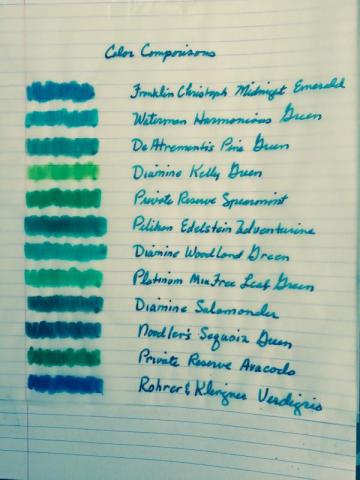 Color Comparisons
Franklin Christoph Midnight Emerald
Waterman Harmonious Green
De Atramentis Pine Green
Diamine Kelly Green
Private Reserve Spearmint
Pelikan Edelstein Adventurine
Diamine Woodland Green
Platinum Mix Free Leaf Green
Diamine Salamander
Noodler's Sequoia Green
Private Reserve Avacado
Rohrer & Klingner Verdigris